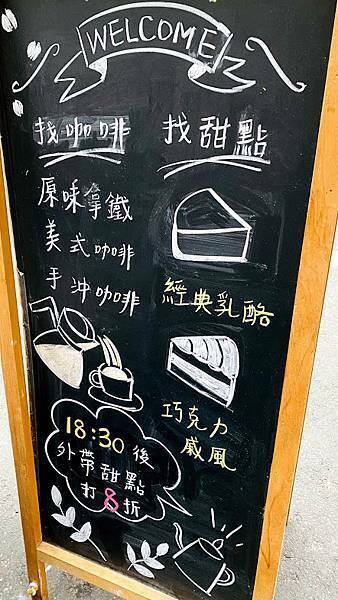 WELCOME
找咖啡
原味拿鐵
美式咖啡
手沖咖啡
找甜點
經典乳酪
巧克力
戚風
18:30後
外帶甜點
打8折